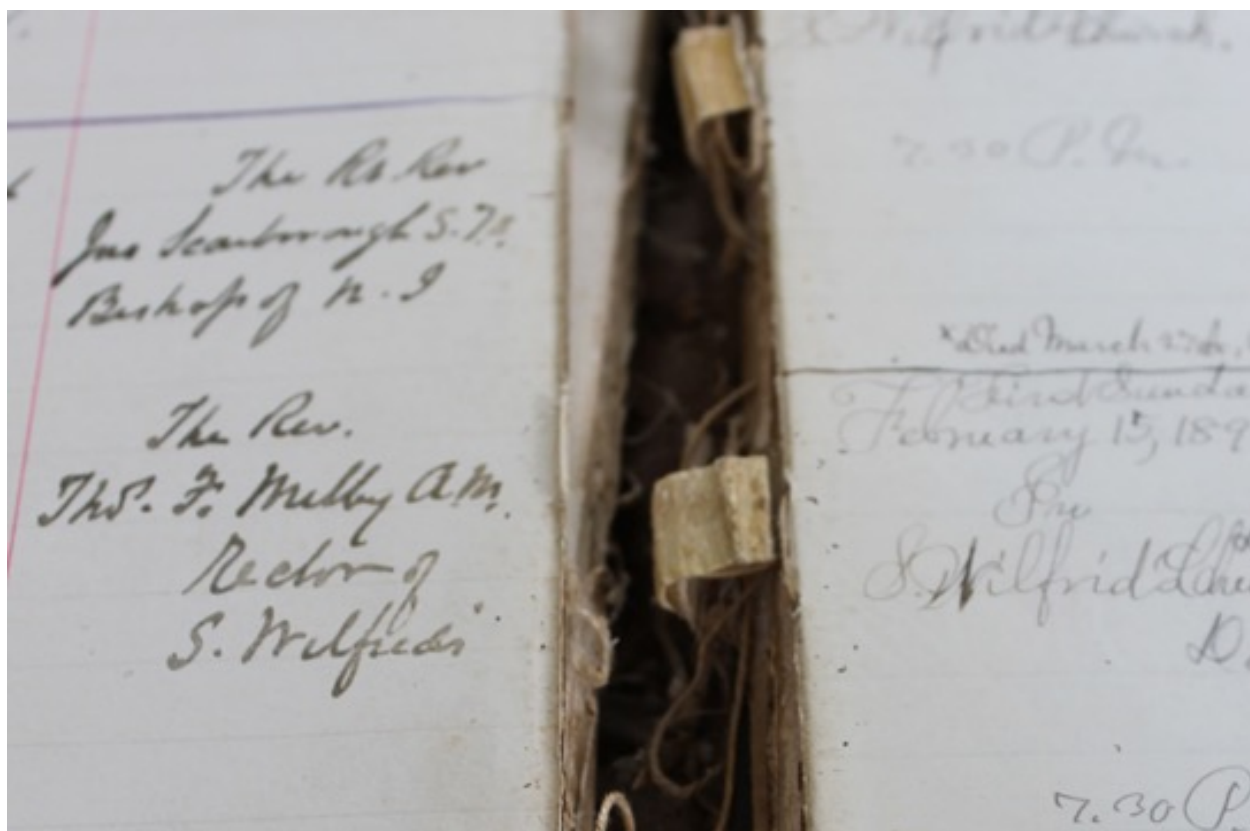 The Rt Rev
Jno Scarborough S.T.D.
Bishop of N. J
The Rev.
Thos. F. Milby A.M.
Rector of
S. Wilfrids
S Wilfrid Church.
7.30 P.M.
*Died March 27th,
First Sunda
February 15, 189
In
S. Wilfrid's
D
7.30 P.